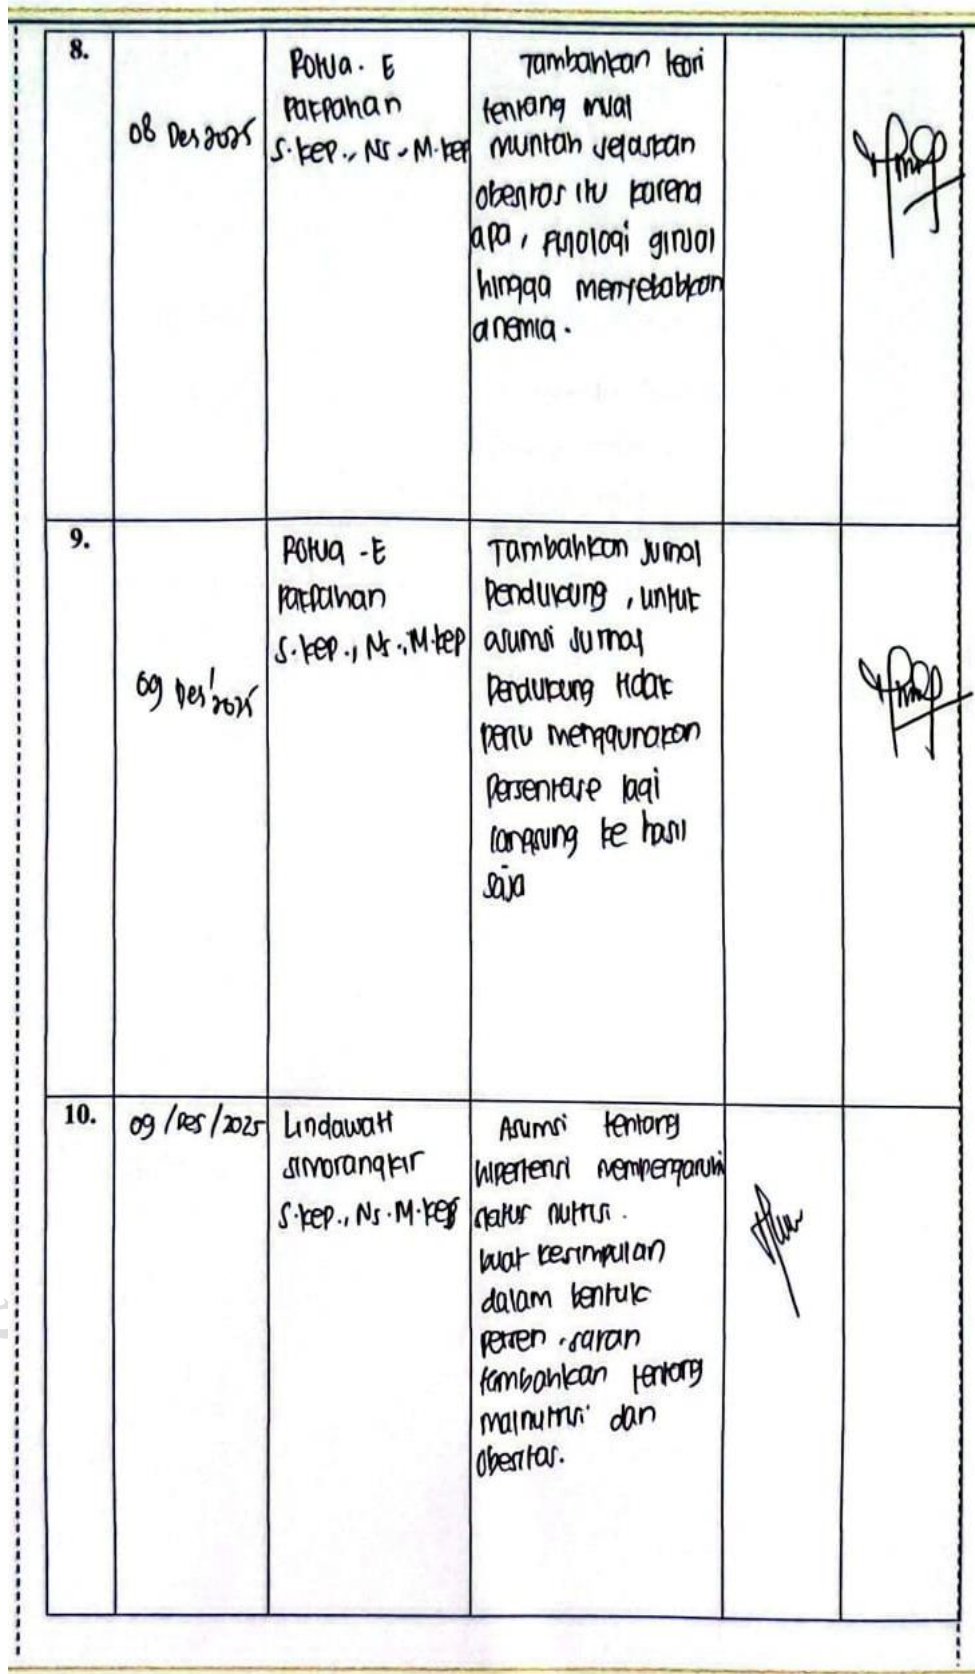 8.
08 Des 2025
Potua. E
Parpahan
S.kep., Ns. M.kep
Tambahkan teori
tentang mual
muntah jelaskan
obesitas itu karena
apa, fisiologi ginjal
hingga menyebabkan
anemia.
9.
09 Des 2025
Potua - E
Patpahan
S.kep., Ns., M.kep
Tambahkan jurnal
Pendukung, untuk
asumsi jurnal
Pendukung tidak
perlu menggunakan
Persentase lagi
langsung ke hasil
saja
10.
09/Des/2025
Lindawati
simorangkir
S.kep., Ns. M.kep
Asumsi tentang
hipertensi mempengaruhi
status nutrisi.
buat kesimpulan
dalam bentuk
persen. saran
tambahkan tentang
malnutrisi dan
Obesitas.